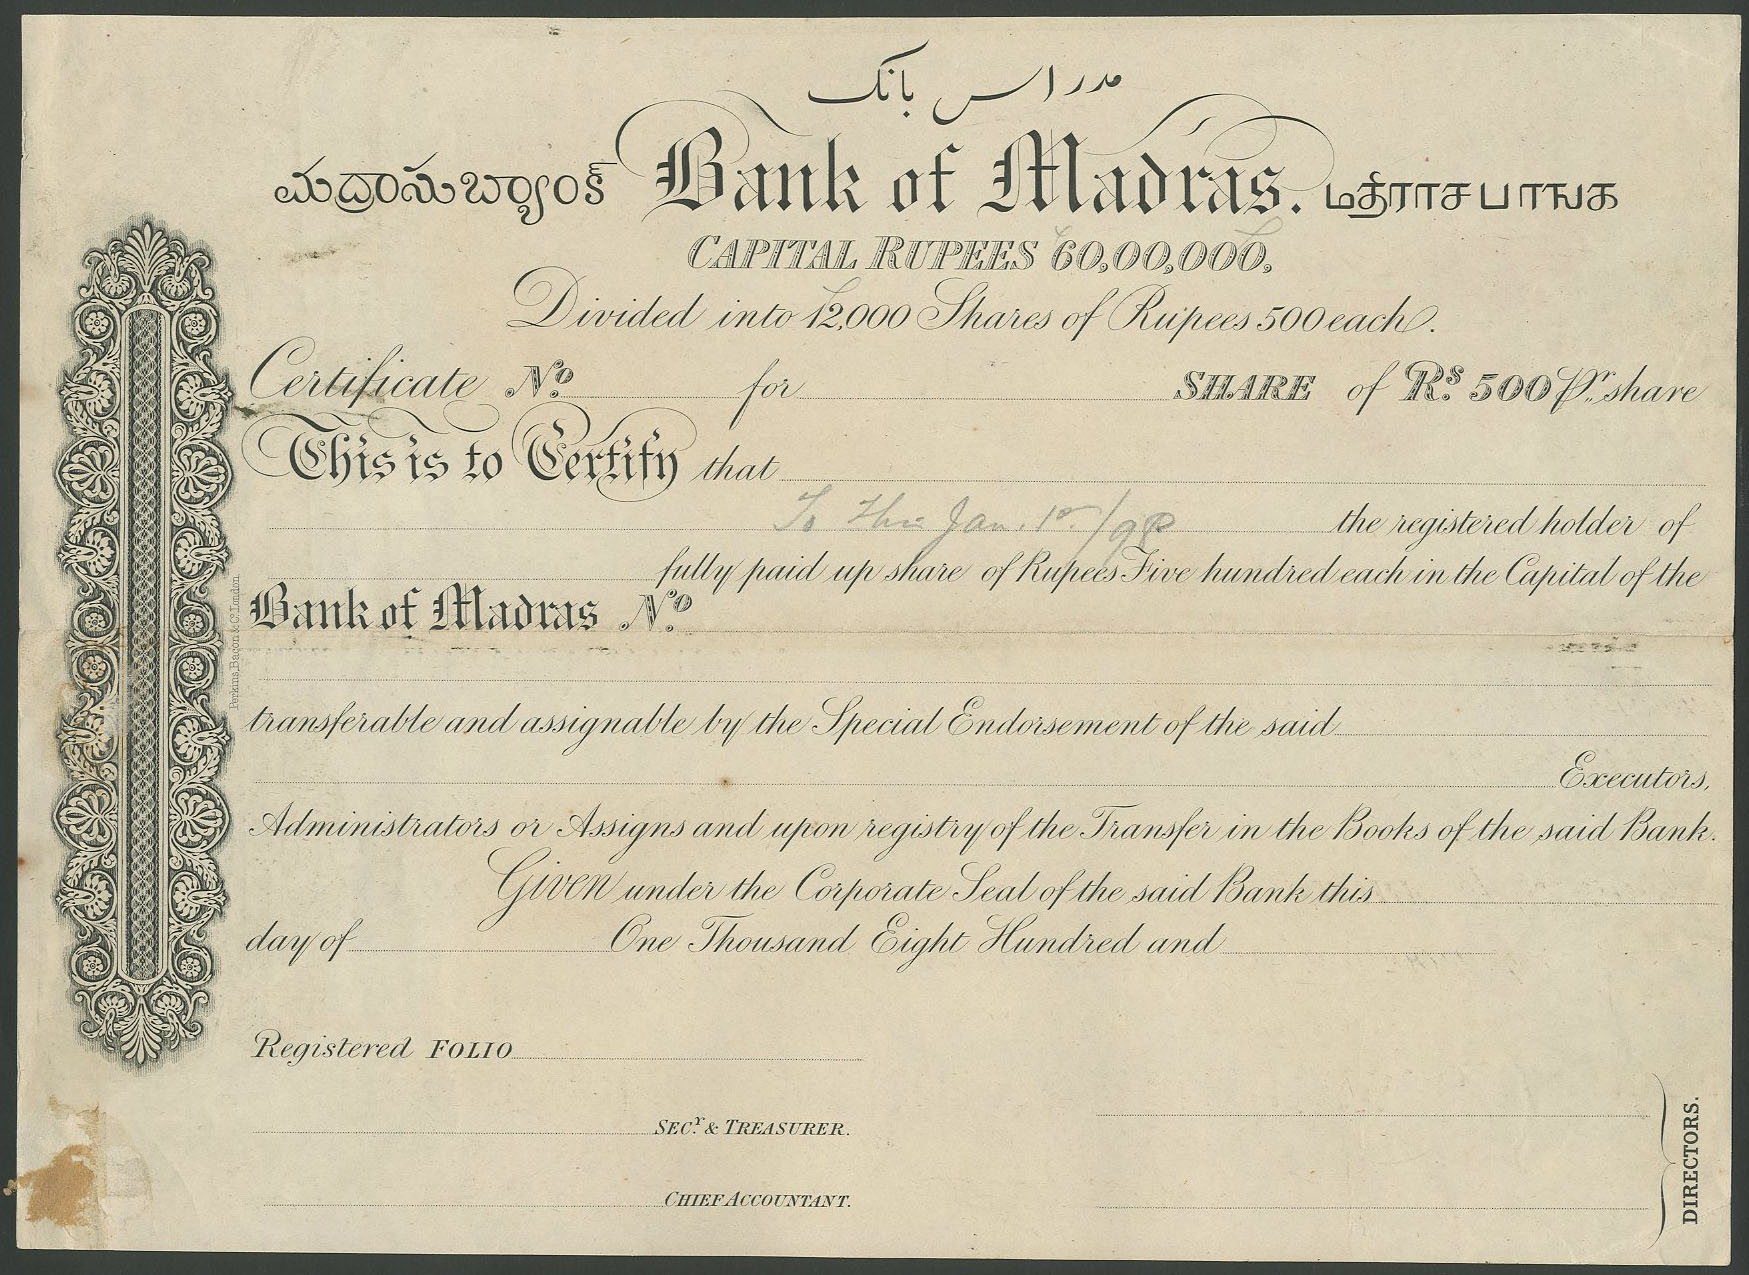 مدراس بانک
ಮದ್ರಾಸು ಬ್ಯಾಂಕ್ Bank of Madras. மத்ராச பாங்க
CAPITAL RUPEES 60,00,000,
Divided into 12,000 Shares of Rupees 500 each.
Certificate No. for SHARE of Rs. 500 Pr. share
This is to Certify that
To Thi Jan. 1st/98 the registered holder of
fully paid up share of Rupees Five hundred each in the Capital of the
Bank of Madras No.
transferable and assignable by the Special Endorsement of the said
Executors,
Administrators or Assigns and upon registry of the Transfer in the Books of the said Bank.
Given under the Corporate Seal of the said Bank this
day of One Thousand Eight Hundred and
Registered FOLIO
SECY. & TREASURER.
CHIEF ACCOUNTANT.
DIRECTORS.
Perkins, Bacon & Co. London.